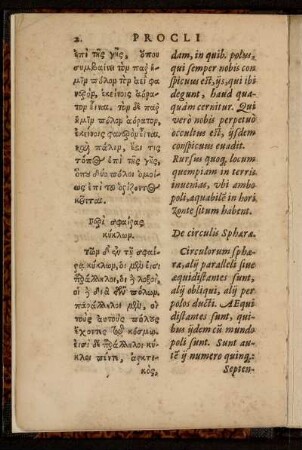 2. PROCLI
ἐπὶ τῆς γῆς, ὅπου
συμβαίνει τὸν παρ᾽
ἡμῖν πόλον τὸν ἀεὶ φα
νερὸν, ἐκείνοις ἀόρα
τον εἶναι. τὸν δὲ παρ᾽
ἡμῖν πόλον ἀόρατον,
ἐκείνοις φανερὸν εἶναι.
πάλιν, ἔστι τις
τόπος ἐπὶ τῆς γῆς,
ὅπου δύο πόλοι ὁμοί
ως ἐπὶ τοῦ ὁρίζοντος
κεῖνται.
Περὶ σφαίρας
κύκλων.
τῶν δ᾽ ἐν τῇ σφαί
ρᾳ κύκλων, οἱ μὲν εἰσι
παράλληλοι, οἱ δὲ λοξοὶ,
οἱ δὲ διὰ τῶν πόλων.
παράλληλοι μὲν, οἱ
τοὺς αὐτοὺς πόλους
ἔχοντες τῷ κόσμῳ.
εἰσὶ δὲ παράλληλοι κύ
κλοι πέντε, ἀρκτι
κὸς,
dam, in quib. polus,
qui semper nobis con
spicuus est, ijs, qui ibi
degunt, haud qua-
quàm cernitur. Qui
verò nobis perpetuò
occultus est, ijsdem
conspicuus euadit.
Rursus quoq, locum
quempiam in terris
inuenias, vbi ambo
poli, æquabilè in hori
zonte situm habent.
De circulis Sphæræ.
Circulorum sphæ-
ræ, alij paralleli siue
æquidistantes sunt,
alij obliqui, alij per
polos ducti. AEqui
distantes sunt, qui-
bus ijdem cũ mundo
poli sunt. Sunt au-
tẽ ij numero quinq;:
Septen-